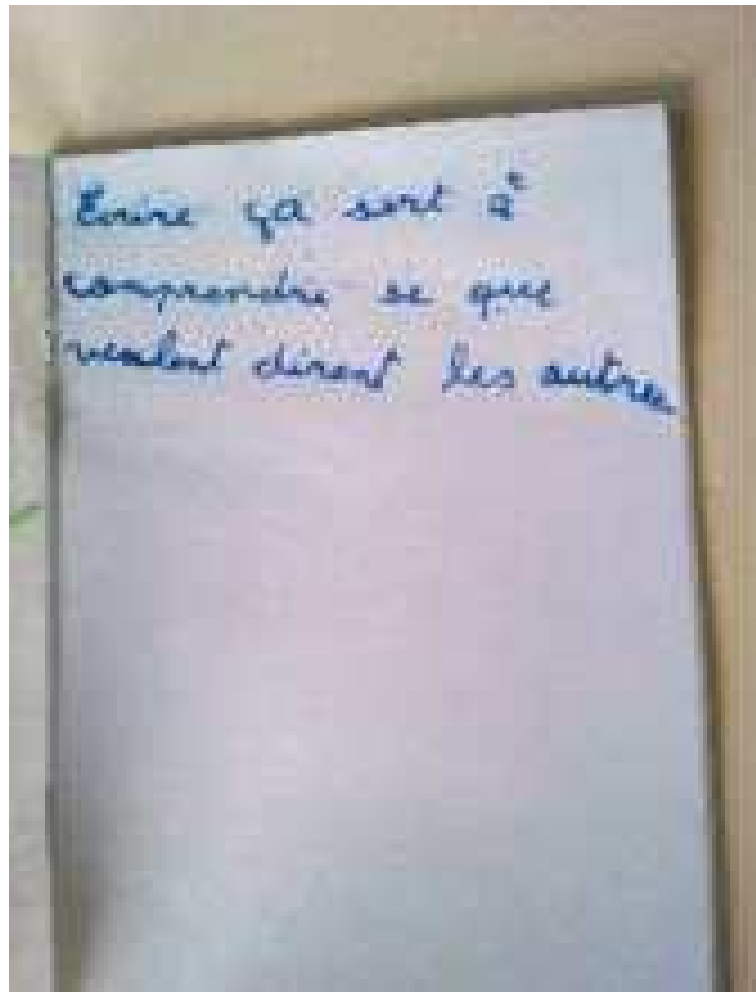 Ecrire ça sert à
comprendre se que
veulent dirent les autre